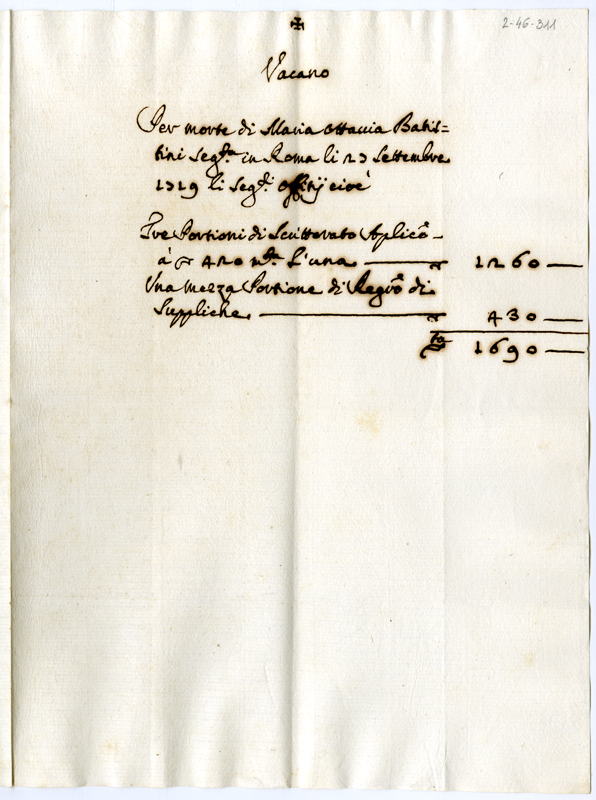 2-46-311
✠
Vacano
Per morte di Maria Ottavia Batis=
tini seg.ta in Roma li 23 Settembre
1719 li seg.ti offitij cioè
Tre Portioni di Scrittorato Aplicõ
à 420 m.ta l'una 1260
Una mezza Portione di Regrõ di
suppliche 430
1690